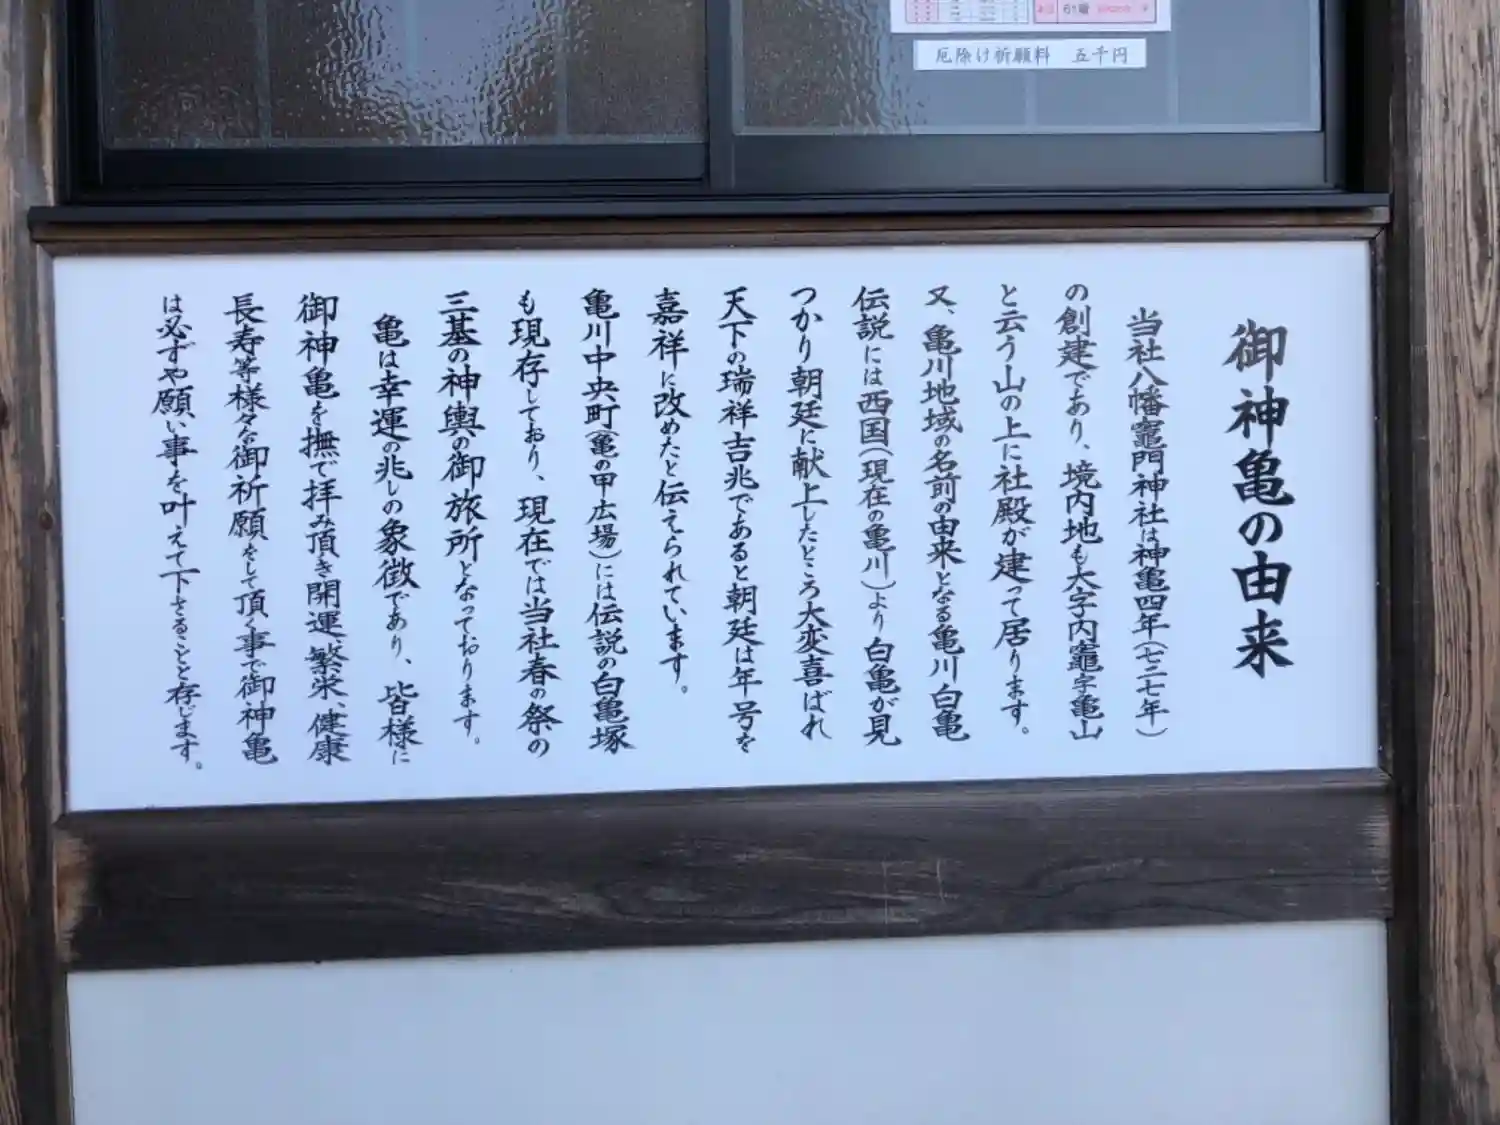 61歳
厄除け祈願料 五千円
御神亀の由来
当社八幡竈門神社は神亀四年(七二七年)
の創建であり、境内地も大字内竈字亀山
と云う山の上に社殿が建って居ります。
又、亀川地域の名前の由来となる亀川白亀
伝説には西国(現在の亀川)より白亀が見
つかり朝廷に献上したところ大変喜ばれ
天下の瑞祥吉兆であると朝廷は年号を
嘉祥に改めたと伝えられています。
亀川中央町(亀の甲広場)には伝説の白亀塚
も現存しており、現在では当社春の祭の
三基の神輿の御旅所となっております。
亀は幸運の兆しの象徴であり、皆様に
御神亀を撫で拝み頂き開運、繁栄、健康
長寿等様々な御祈願をして頂く事で御神亀
は必ずや願い事を叶えて下さることと存じます。